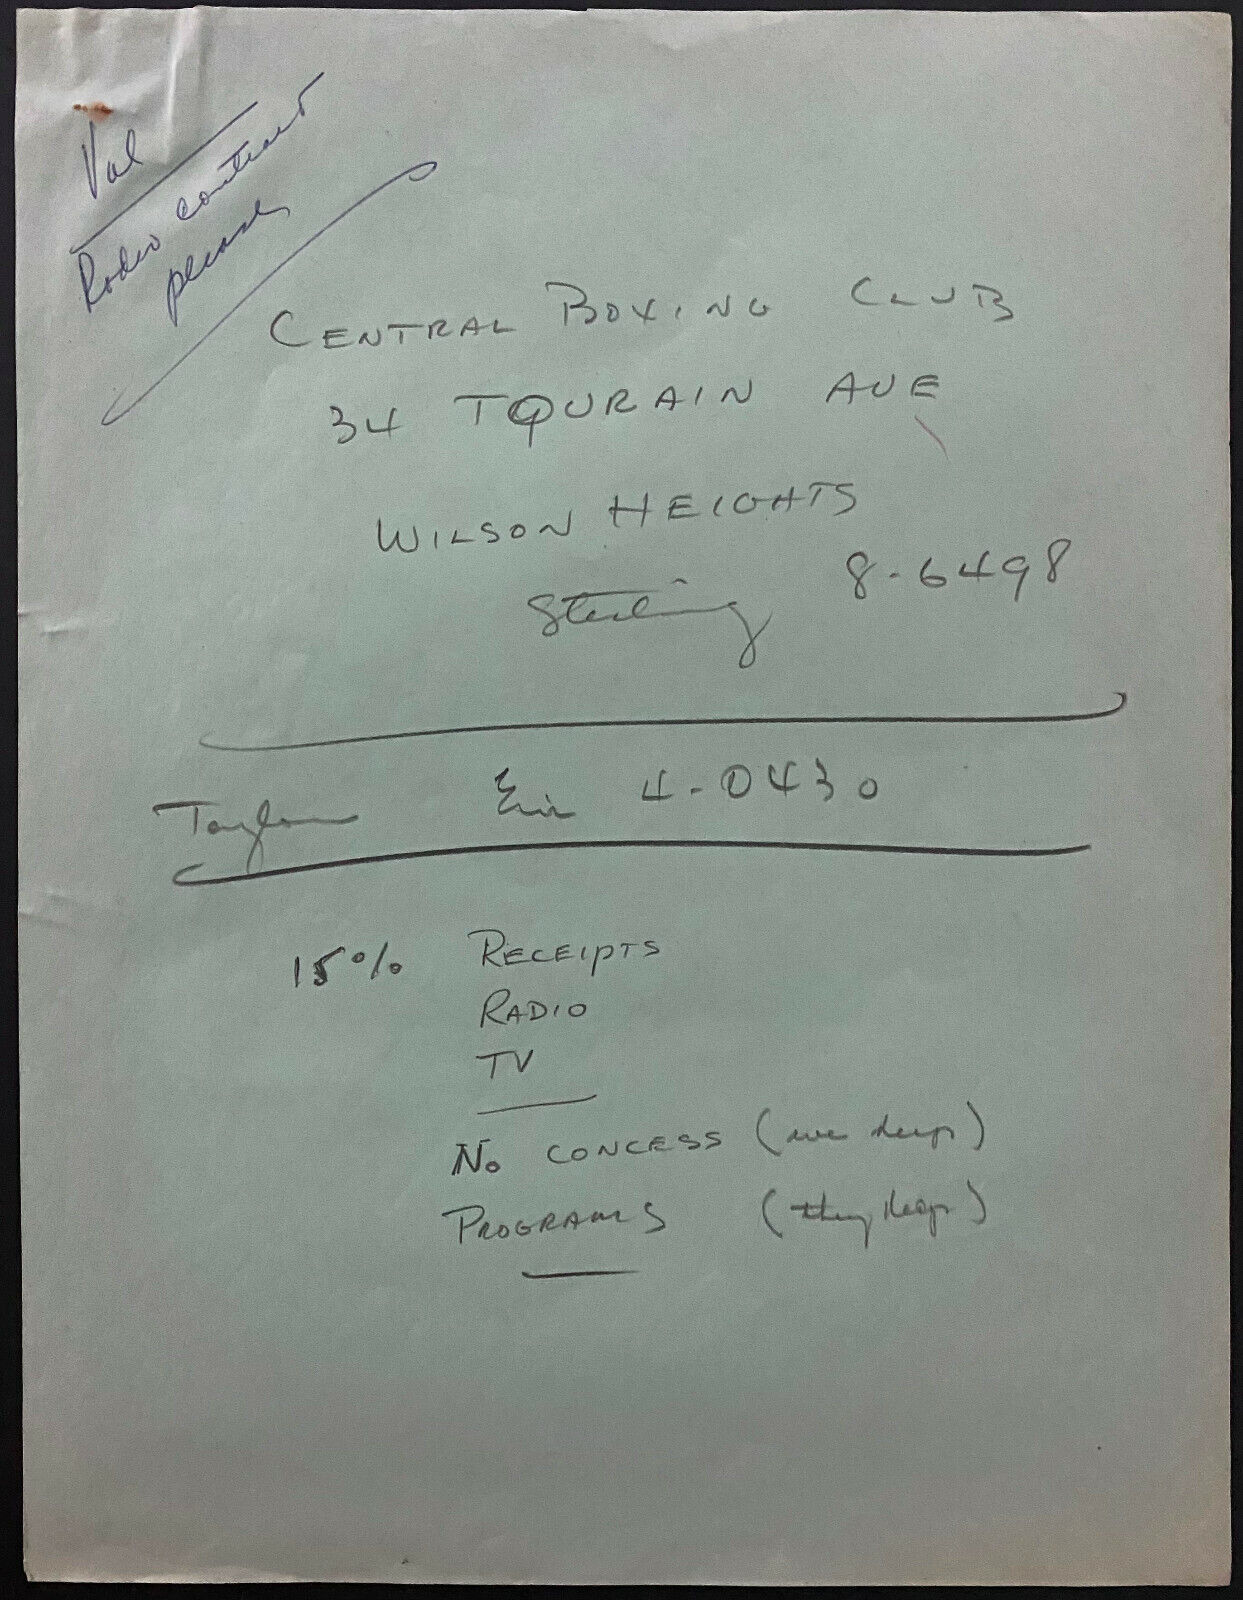 Val
Rodeo contract
please
CENTRAL BOXING CLUB
34 TOURAIN AVE
WILSON HEIGHTS
Sterling 8-6498
Taylor Em 4-0430
15% RECEIPTS
RADIO
TV
No CONCESS (we keep)
PROGRAMS (they keep)